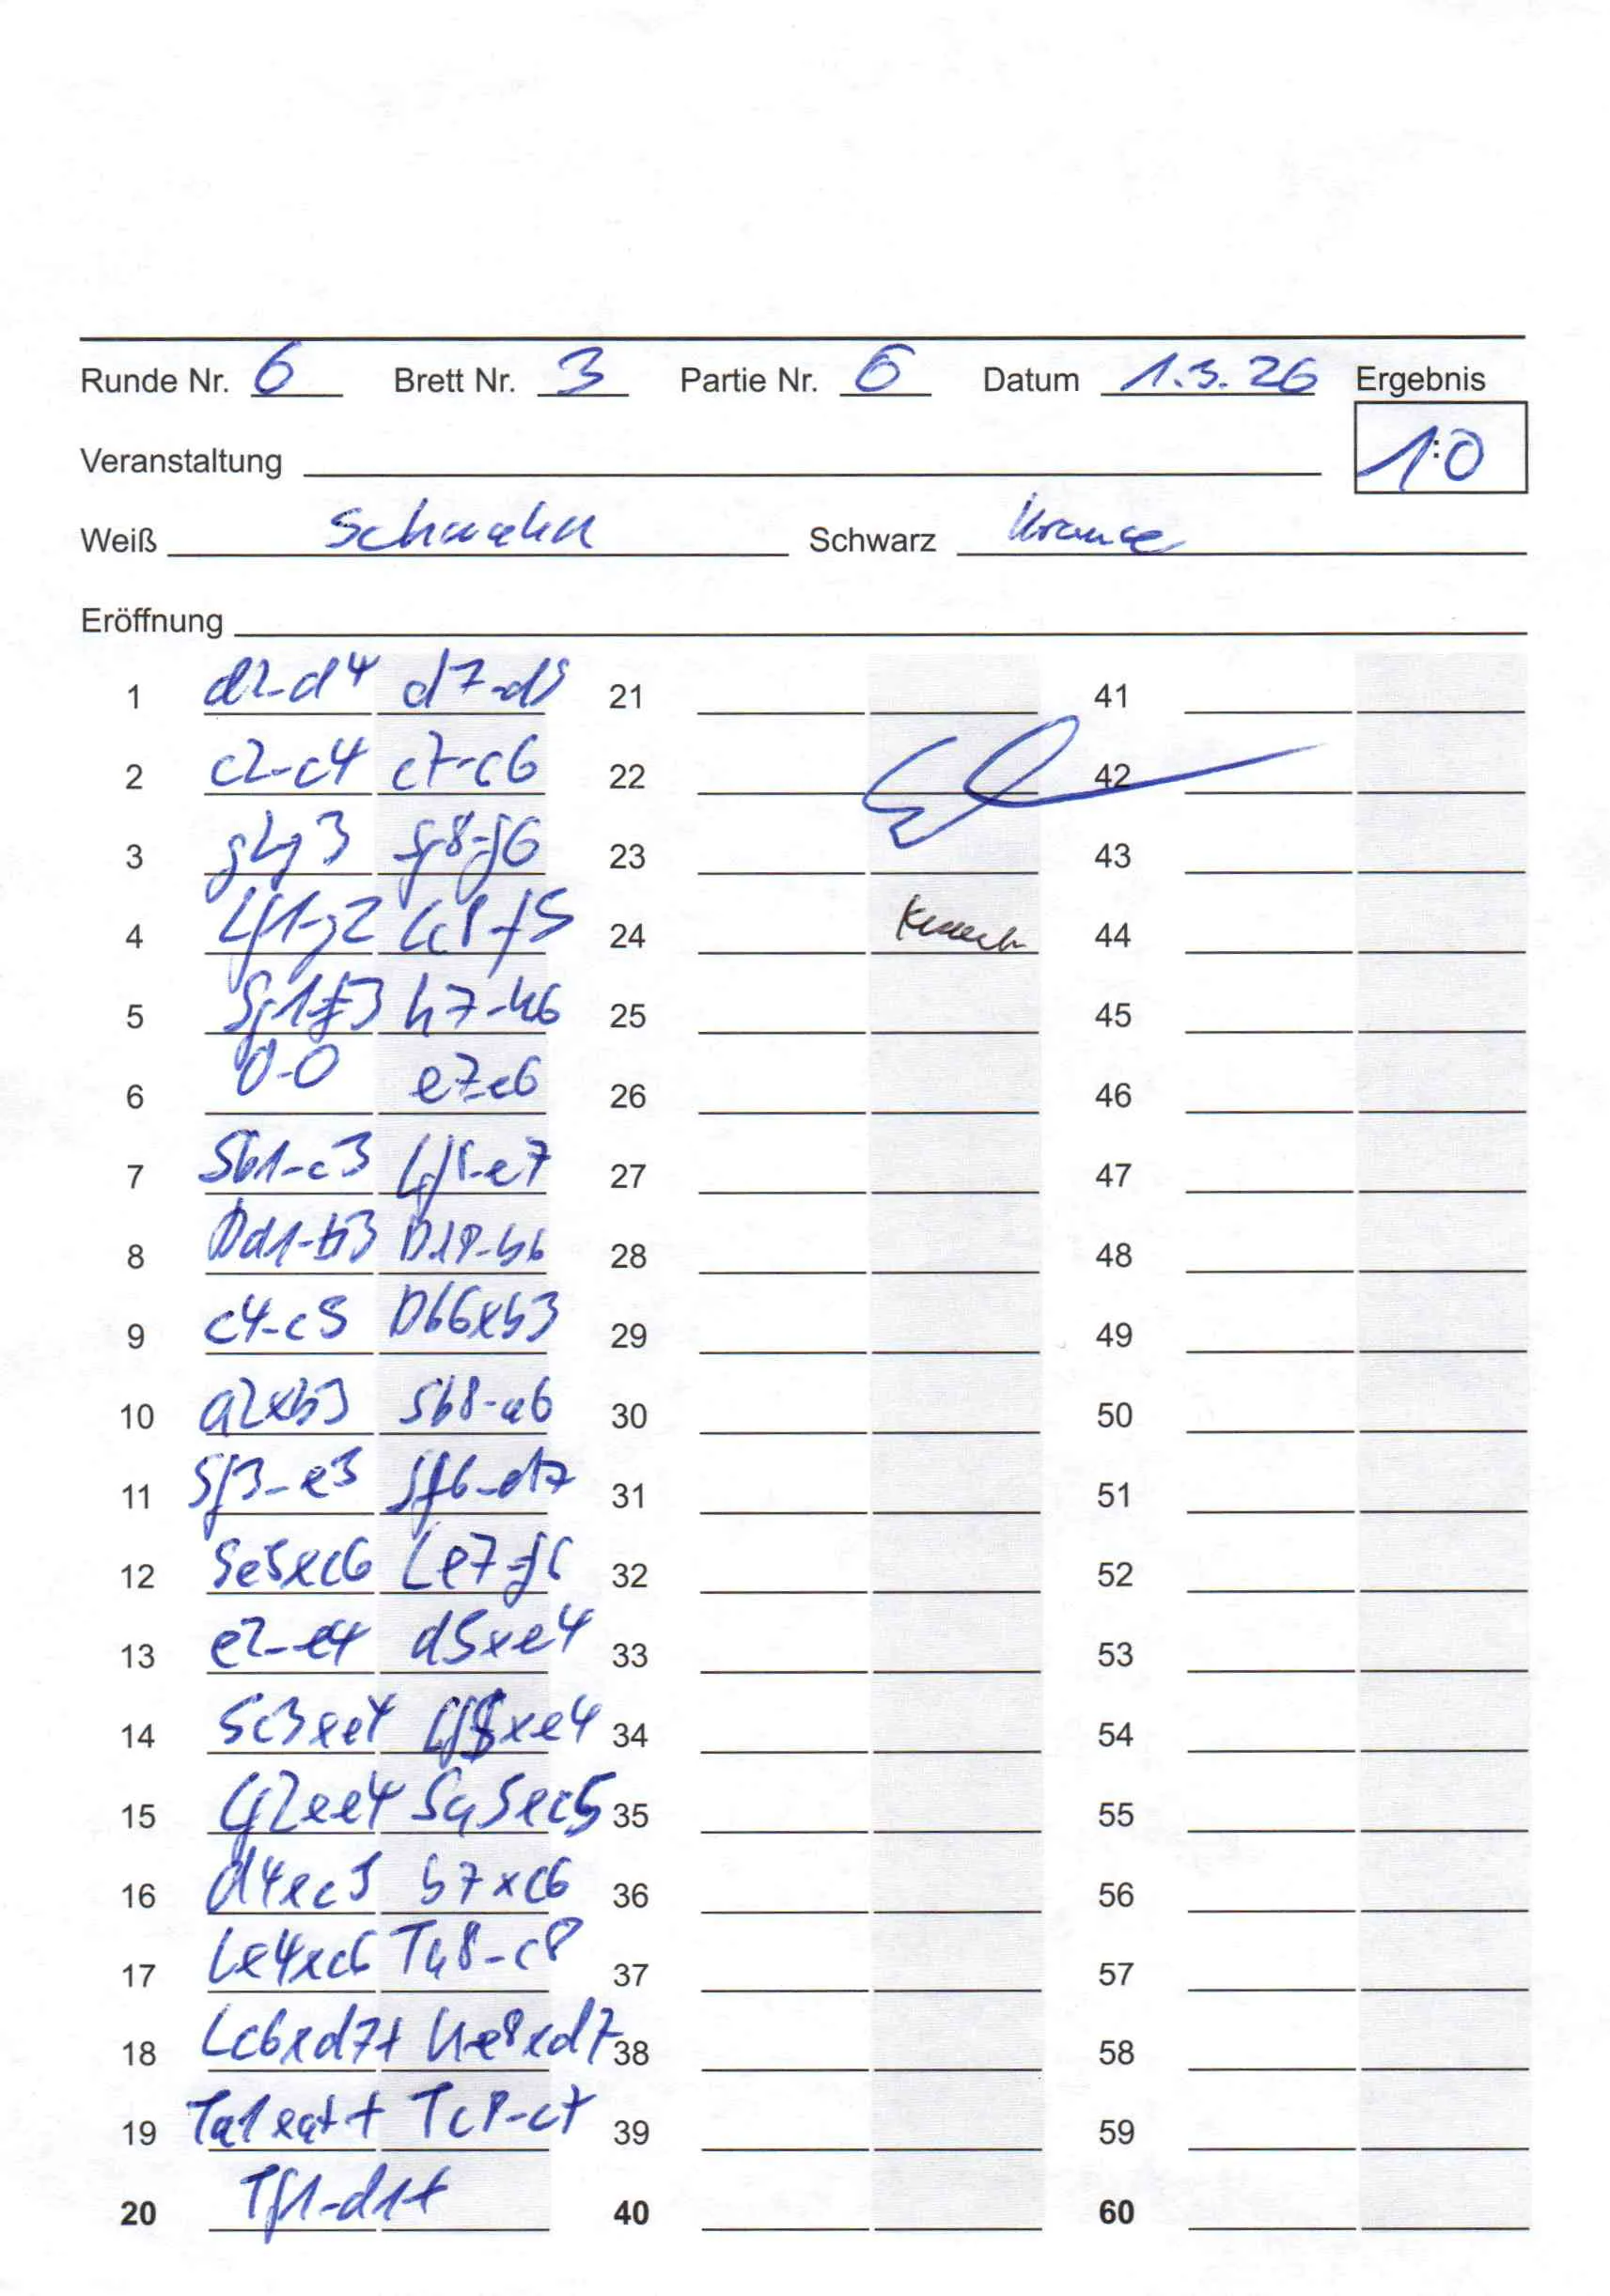 Runde Nr. 6 Brett Nr. 3 Partie Nr. 6 Datum 1.3.26 Ergebnis
Veranstaltung 1:0
Weiß Schwahn Schwarz Krause
Eröffnung
1 d2-d4 d7-d5 21 41
2 c2-c4 c7-c6 22 42
3 g2g3 Sg8-f6 23 43
4 Lf1-g2 Lc8-f5 24 44
5 Sg1-f3 h7-h6 25 45
6 0-0 e7-e6 26 46
7 Sb1-c3 Lf8-e7 27 47
8 Dd1-b3 Dd8-b6 28 48
9 c4-c5 Db6xb3 29 49
10 a2xb3 Sb8-a6 30 50
11 Sf3-e3 Sf6-d7 31 51
12 Se5xc6 Le7-f6 32 52
13 e2-e4 d5xe4 33 53
14 Sc3xe4 Lf5xe4 34 54
15 Lg2xe4 Sa5xc5 35 55
16 d4xc5 b7xc6 36 56
17 Le4xc6 Ta8-c8 37 57
18 Lc6xd7+ Ke8xd7 38 58
19 Ta1xa7+ Tc8-c7 39 59
20 Tf1-d1+ 40 60